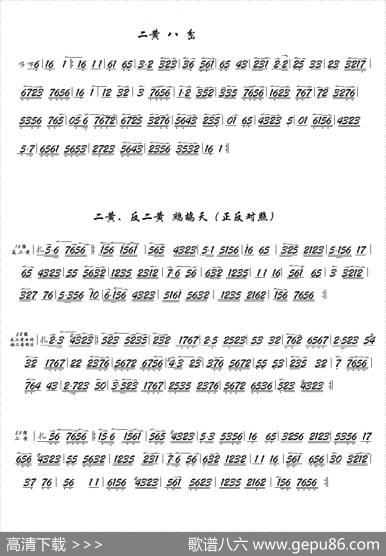 二黄八岔
6 16 1 16 11 61 65 3·2 323 36 561 65 43 231 2·2 25 33 23 3217
6723 7656 16 1 12 32 3 7656 1·2 352 335 7656 1623 767 72 3276
5356 765 05·6 7672 6725 3276 5643 235 01 65 4323 5 01 6156 4323
5·7 6561 5653 2723 5643 2356 3532 16 1
二黄、反二黄 鹧鸪天（正反对照）
反二黄
扎 5·6 7656 156 1561 565 4323 5·1 5156 16 65 325 2123 5·156 17
65 4323 55 5632 1235 2312 7·6 56 632 1235 11 16 561 65 3 3212
327 76 5·356 10 6·156 4323 5161 5632 1235 2162 156 7656
扎 2·3 4323 523 5235 232 1767 2·5 2523 53 32 762 6567 2·523 54
32 1767 22 2376 5672 6756 4·3 23 376 5672 55 53 235 32 7 7656
764 43 2·723 50 3·523 1767 2535 2376 5672 6536 523 4323
二黄
扎 56 7656 15·6 1561 565 4323 5·3 5356 16 65 3256 2123 5356 17
656 4323 55 5632 1235 231 7·6 56 632 1232 11 16 561 656 30 3212
37 76 56 11 6156 4323 561 5623 1235 2162 156 7656
高清下载 >>>
歌谱八六 www.gepu86.com